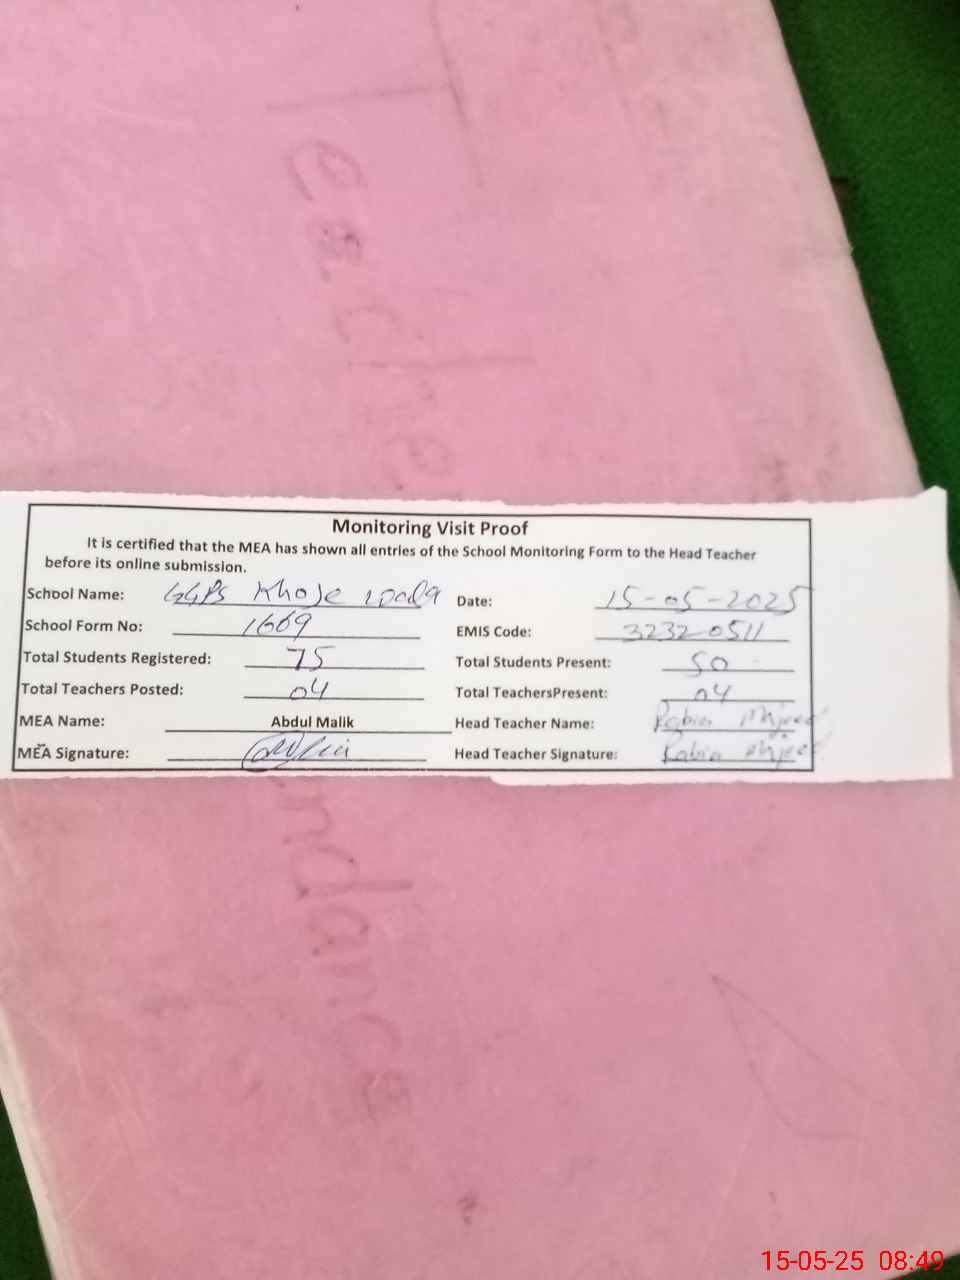 Teacher
Monitoring Visit Proof
It is certified that the MEA has shown all entries of the School Monitoring Form to the Head Teacher
before its online submission.
School Name: GGPS Khoje wala Date: 15-05-2025
School Form No: 1669 EMIS Code: 32320511
Total Students Registered: 75 Total Students Present: 50
Total Teachers Posted: 04 Total TeachersPresent: 04
MEA Name: Abdul Malik Head Teacher Name: Rabia
MEA Signature: Head Teacher Signature: Rabia
ndance
15-05-25 08:49